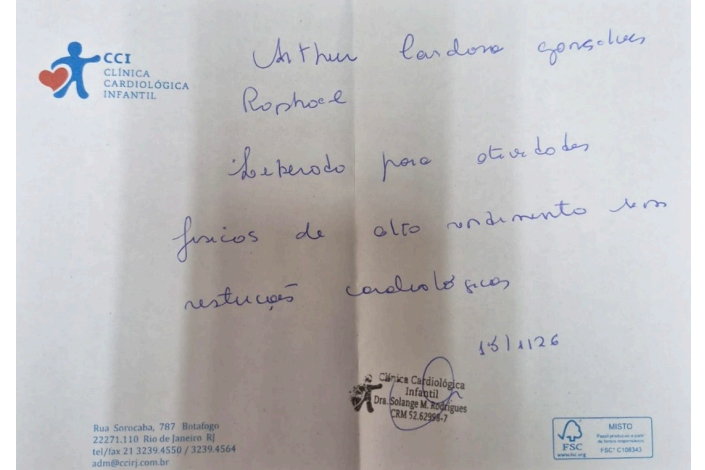 CCI
CLÍNICA
CARDIOLÓGICA
INFANTIL
Arthur Cardoso gonsalves
Raphael
Liberado para atividades
físicas de alto rendimento sem
restrições cardiológicas
15/1/26
Clínica Cardiológica
Infantil
Dra. Solange M. Rodrigues
CRM 52.62998-7
Rua Sorocaba, 787 Botafogo
22271.110 Rio de Janeiro RJ
tel/fax 21 3239.4550 / 3239.4564
adm@ccirj.com.br
FSC
www.fsc.org
MISTO
FSC® C108343